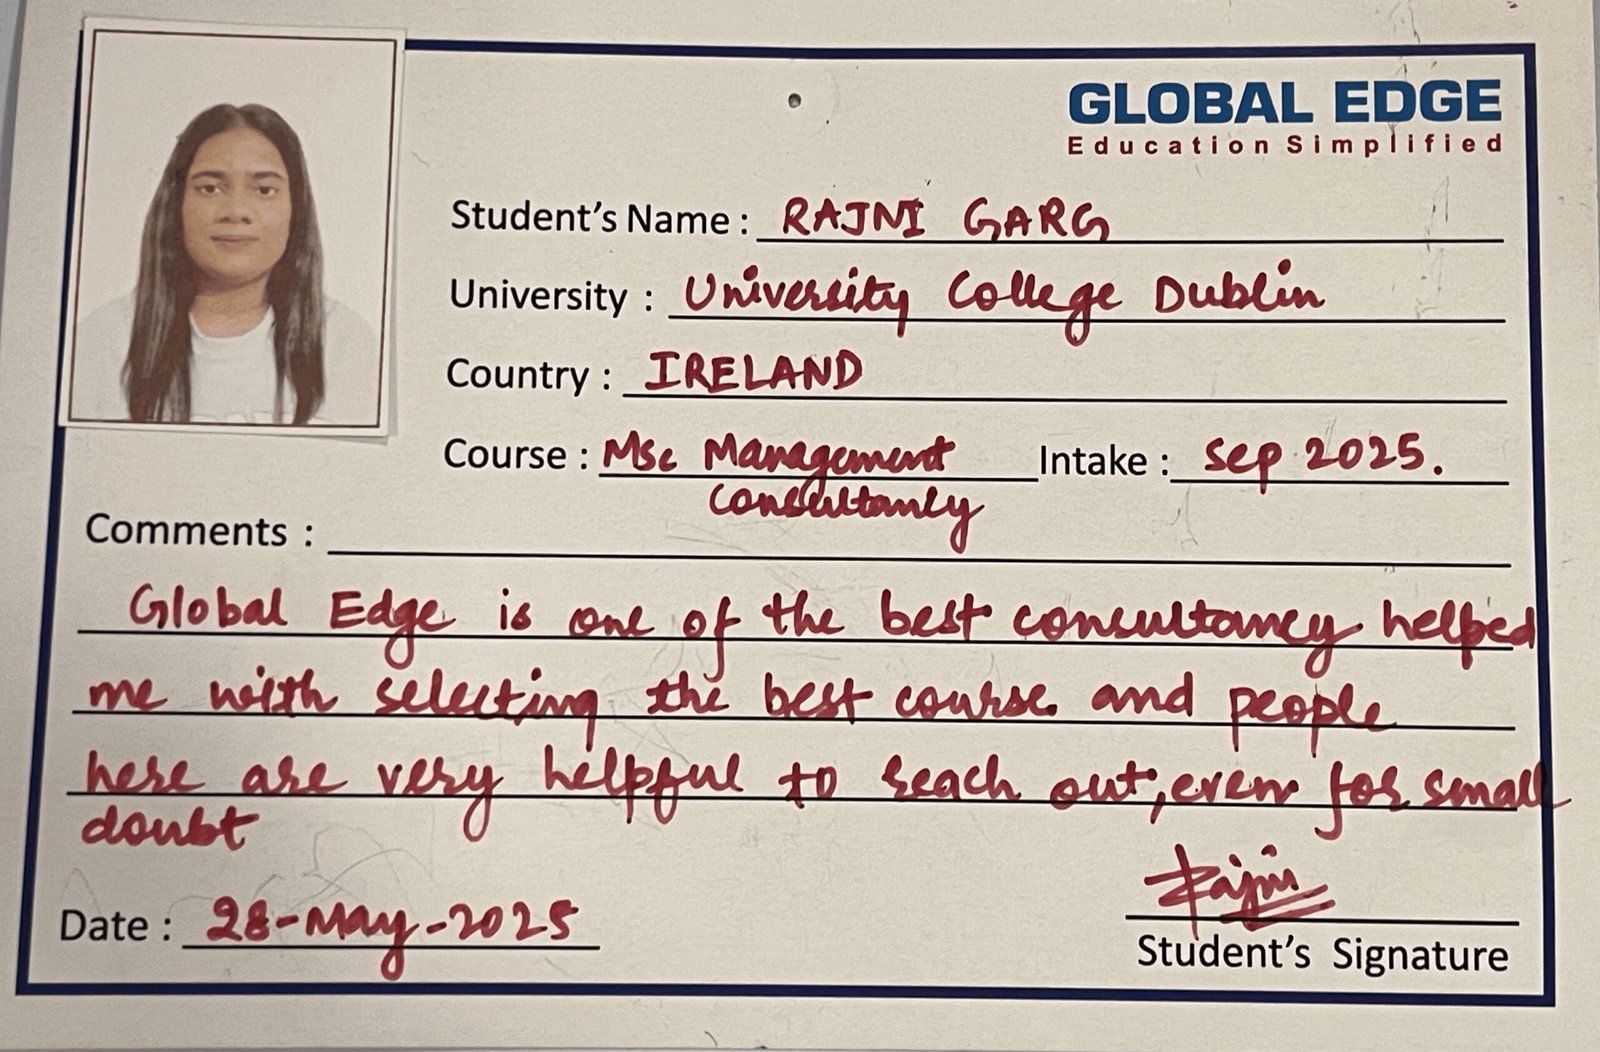 GLOBAL EDGE
Education Simplified
Student's Name : RAJNI GARG
University : University College Dublin
Country : IRELAND
Course : Msc Management Intake : Sep 2025.
Consultancy
Comments :
Global Edge is one of the best consultancy helped
me with selecting the best course and people
here are very helpful to reach out, even for small
doubt
Rajni
Date : 28-May-2025
Student's Signature